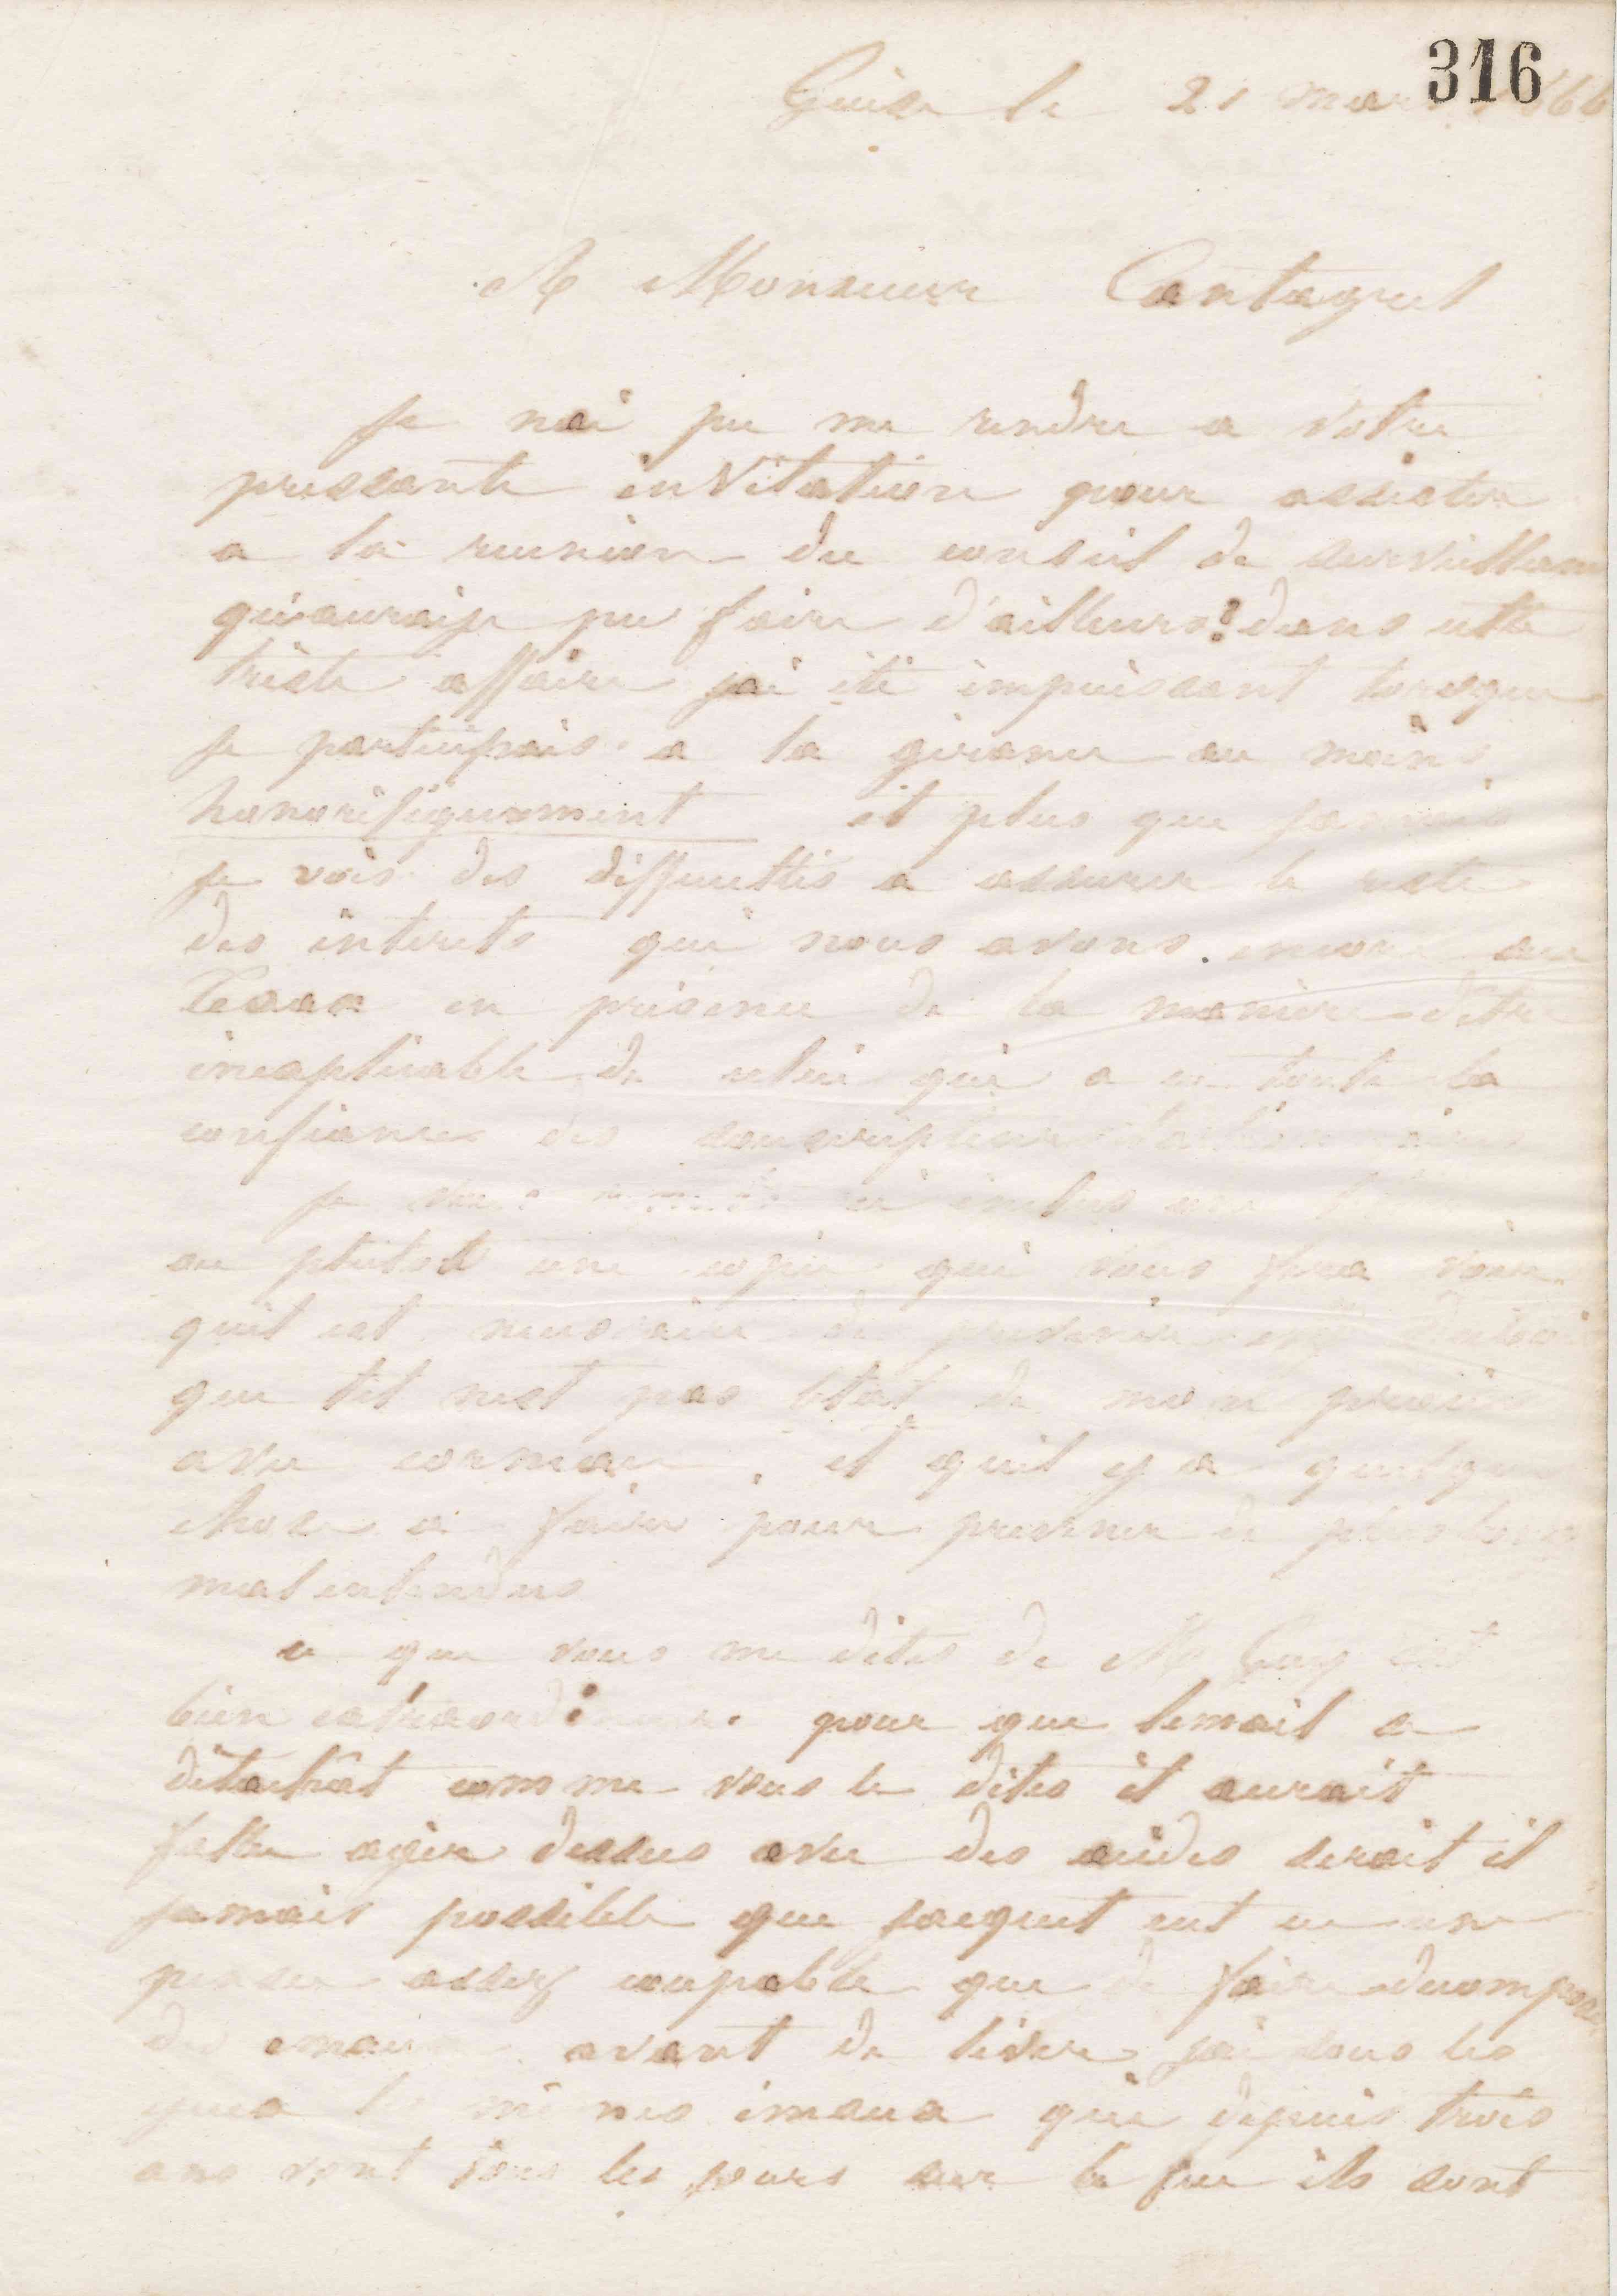 316
Guise le 21 mars 1866
A Monsieur Cantagrel
Je nai pu me rendre a votre
pressante invitation pour assister
a la reunion du conseil de surveillance
qu'auraije pu faire d'ailleurs? dans cette
triste affaire jai été impuissant lorsque
je participais a la gérance au moins
honorifiquement et plus que jamais
je vois des difficultés a assurer le reste
des intérets que nous avons encore au
Texas en présence de la manière d'etre
inexplicable de celui qui a eu toute la
confiance des souscripteurs
je ci inclus une
ou plutot une copie qui vous fera voir
quil est necessaire de prevenir
que tel nest pas l'état de mon procès
avec et quil y a quelque
chose a faire pour prevenir de plus
malentendus
ce que vous me dites de M Guy est
bien extraordinaire pour que lemail se
détachât comme vous le dites il aurait
fallu agir dessus avec des acides serait il
jamais possible que jacquet eut eu une
pensée assez coupable que de faire decomposer
des emaux avant de livrer jai sous les
yeux les mêmes émaux qui depuis trois
ans vont tous les jours sur le feu ils sont